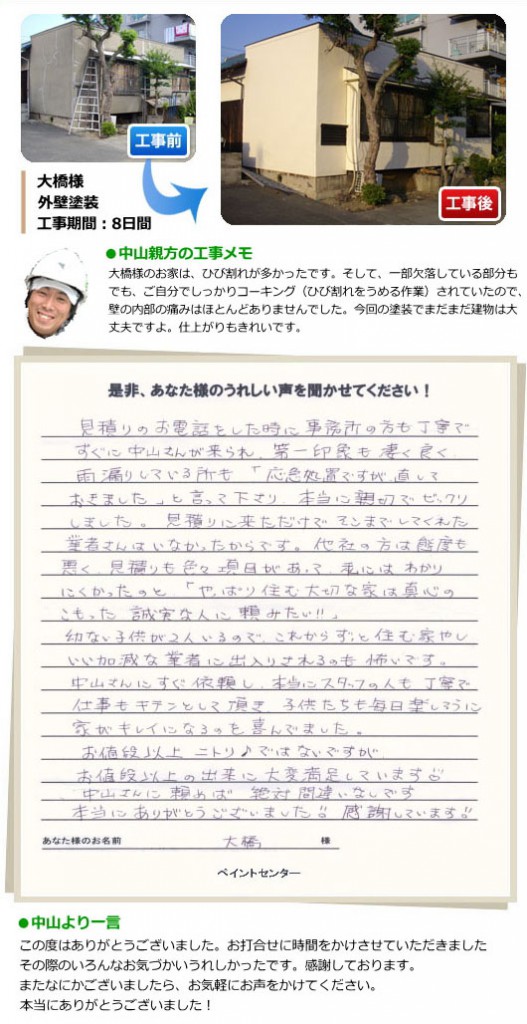 工事前
工事後
大橋様
外壁塗装
工事期間：8日間
●中山親方の工事メモ
大橋様のお家は、ひび割れが多かったです。そして、一部欠落している部分も
でも、ご自分でしっかりコーキング（ひび割れをうめる作業）されていたので、
壁の内部の痛みはほとんどありませんでした。今回の塗装でまだまだ建物は大
丈夫ですよ。仕上がりもきれいです。
是非、あなた様のうれしい声を聞かせてください！
見積りのお電話をした時に事務所の方も丁寧で
すぐに中山さんが来られ、第一印象も凄く良く、
雨漏りしている所も「応急処置ですが直して
おきました」と言って下さり、本当に親切でビックリ
しました。見積りに来ただけでそこまでしてくれた
業者さんはいなかったからです。他社の方は態度も
悪く、見積りも色々項目があって、私にはわかり
にくかったのと、「やっぱり住む大切な家は真心の
こもった誠実な人に頼みたい!!」
幼ない子供が2人いるので、これからずっと住む家やし
いい加減な業者に出入りされるのも怖いです。
中山さんにすぐ依頼し、本当にスタッフの人も丁寧で
仕事もキチンとして頂き、子供たちも毎日楽しそうに
家がキレイになるのを喜んでました。
お値段以上 ニトリ♪ではないですが、
お値段以上の出来に大変満足しています
中山さんに頼めば 絶対間違いなしです
本当にありがとうございました!! 感謝しています!!
あなた様のお名前 大橋 様
ペイントセンター
●中山より一言
この度はありがとうございました。お打合せに時間をかけさせていただきました
その際のいろんなお気づかいうれしかったです。感謝しております。
またなにかございましたら、お気軽にお声をかけてください。
本当にありがとうございました！